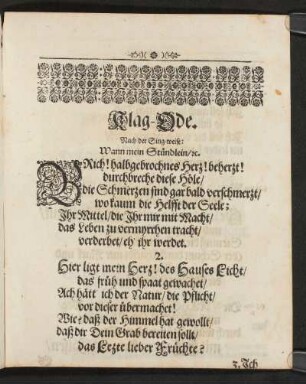 Klag-Ode.
Nach der Sing-weise:
Wann mein Stündlein/ ꝛc.
BRich! halbgebrochnes Herz! beherzt!
durchbreche diese Höle/
die Schmerzen sind gar bald verschmerzt/
wo kaum die Helfft der Seele;
Ihr Mittel/ die Ihr mir mit Macht/
das Leben zu vermehren tracht/
verderbet/ eh' ihr werdet.
2.
Hier ligt mein Herz! des Hauses Licht/
das früh und spaat gewachet/
Ach hätt ich der Natur/ die Pflicht/
vor dieser übermachet!
Wie? daß der Himmel hat gewollt/
daß dir Dein Grab bereiten sollt/
das Letzte lieber Früchte?
3. Ich